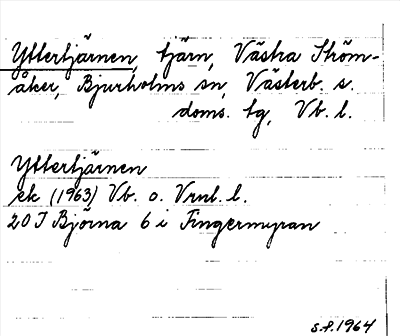 Yttertjärnen, tjärn, Västra Ström-
åker, Bjurholms sn, Västerb. s.
doms. tg, Vb. l.
Yttertjärnen
ek (1963) Vb. o. Vrml. l.
20 I Björna 6 i Fingermyran
S.P. 1964